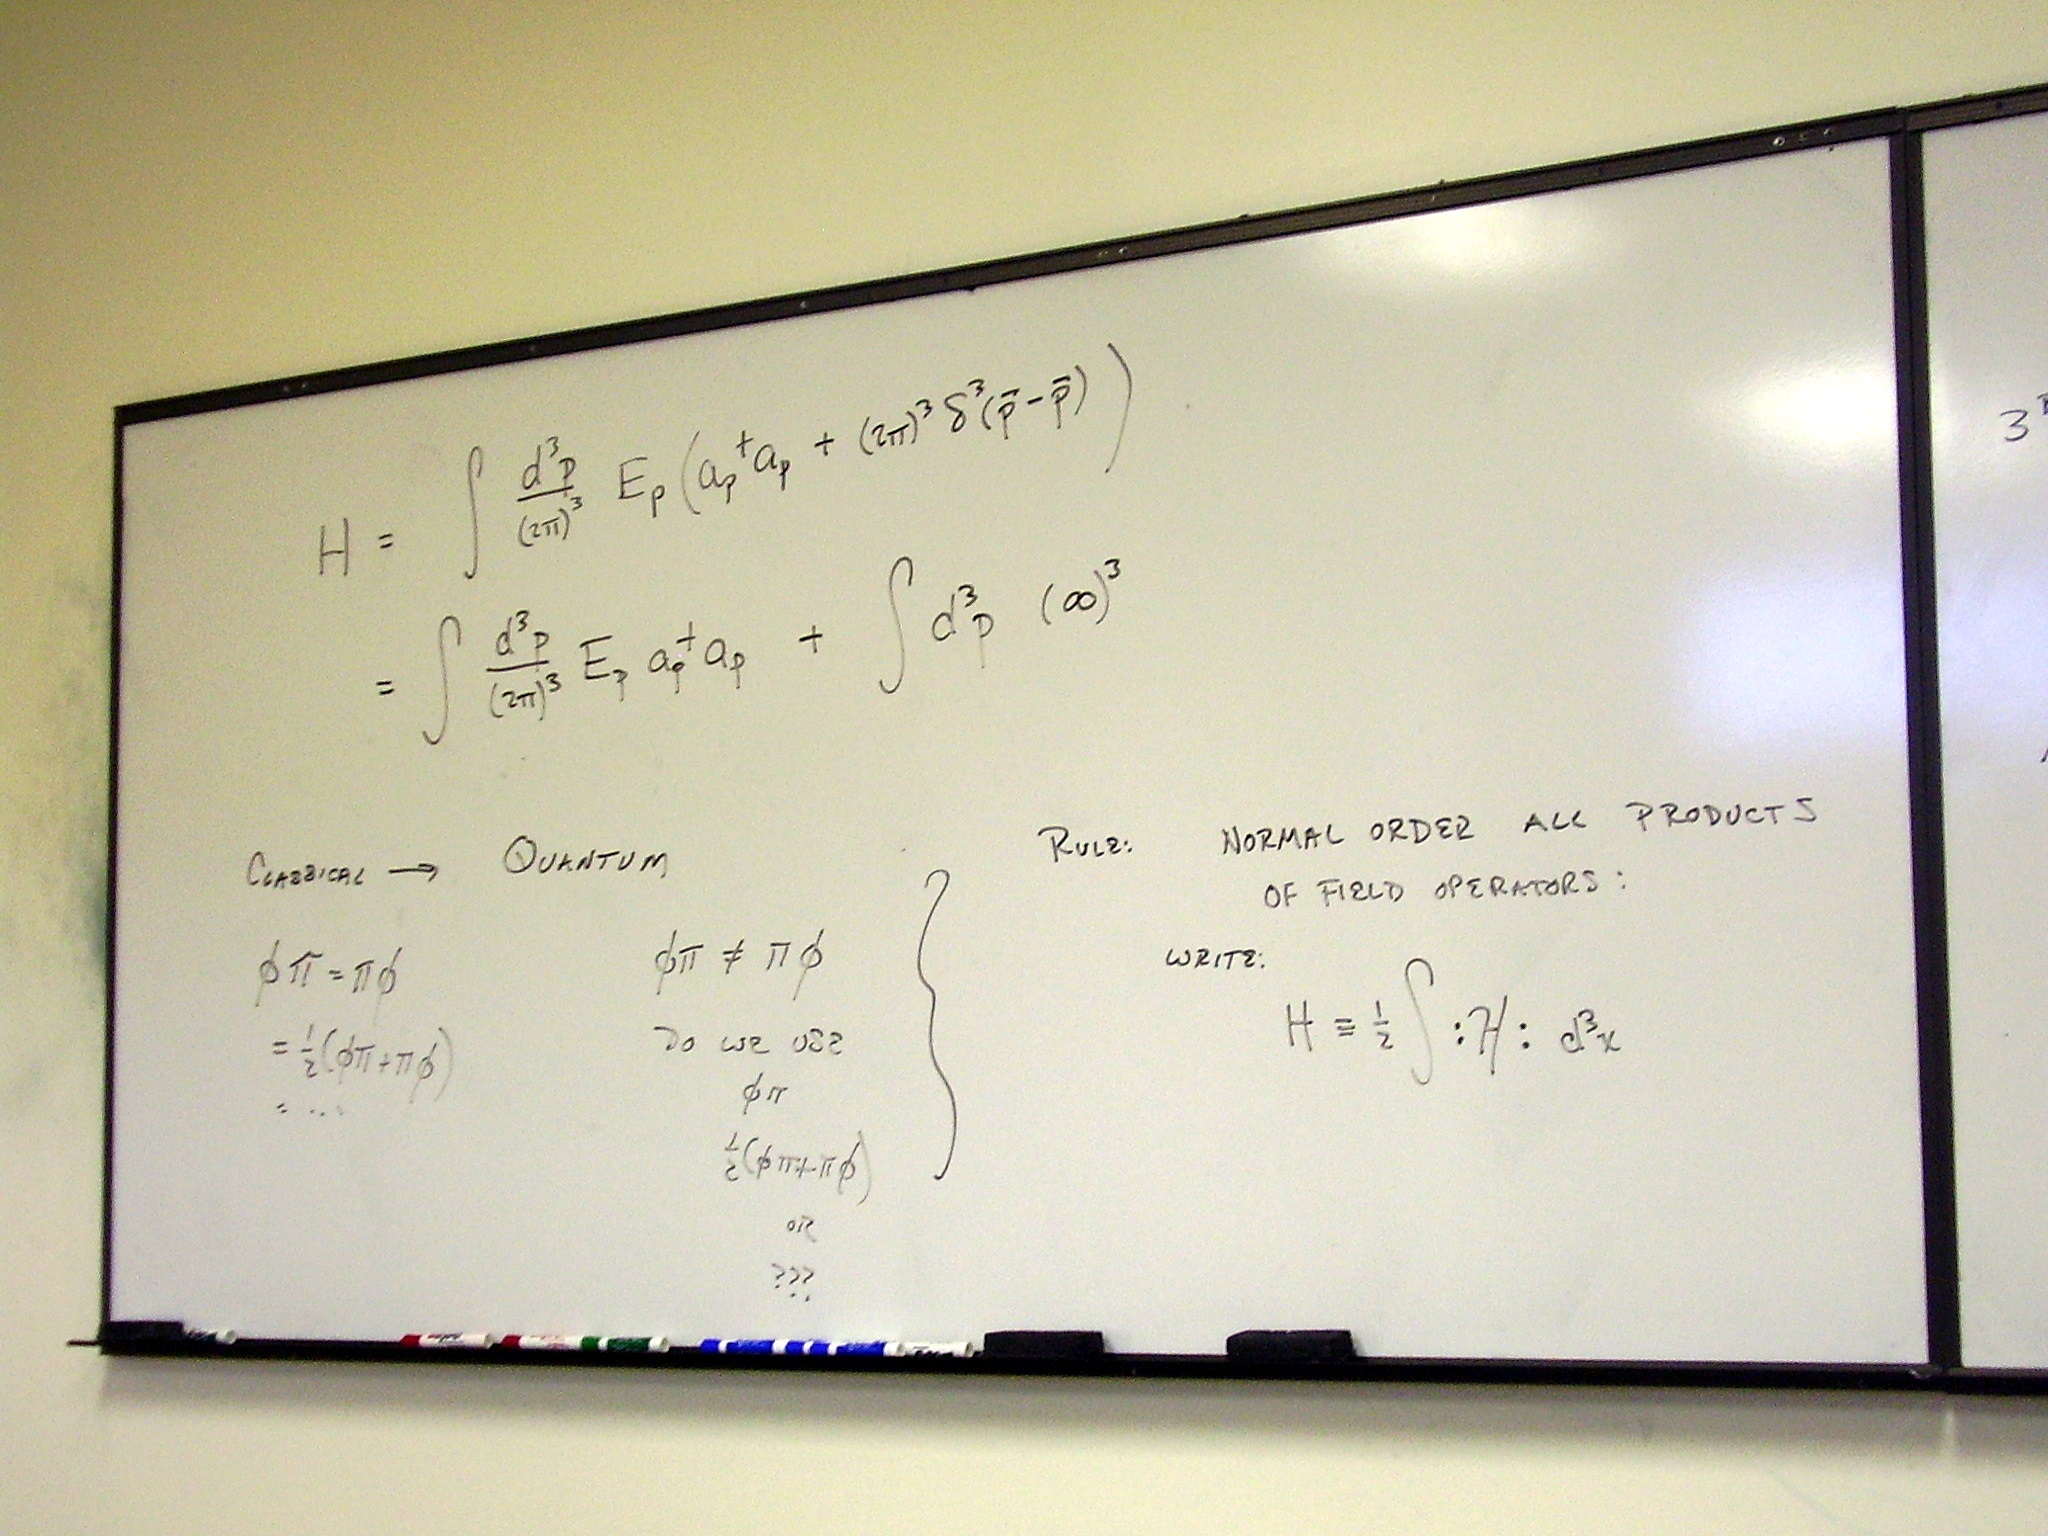 H = ∫ d³p/(2π)³ E_p (a_p† a_p + (2π)³ δ³(p̄ - p̄))
= ∫ d³p/(2π)³ E_p a_p† a_p + ∫ d³p (∞)³
CLASSICAL → QUANTUM
φπ = πφ
= ½(φπ + πφ)
= ...
φπ ≠ πφ
DO WE USE
φπ
½(φπ + πφ)
OR
???
RULE: NORMAL ORDER ALL PRODUCTS
OF FIELD OPERATORS:
WRITE:
H ≡ ½ ∫ :ℋ: d³x
3